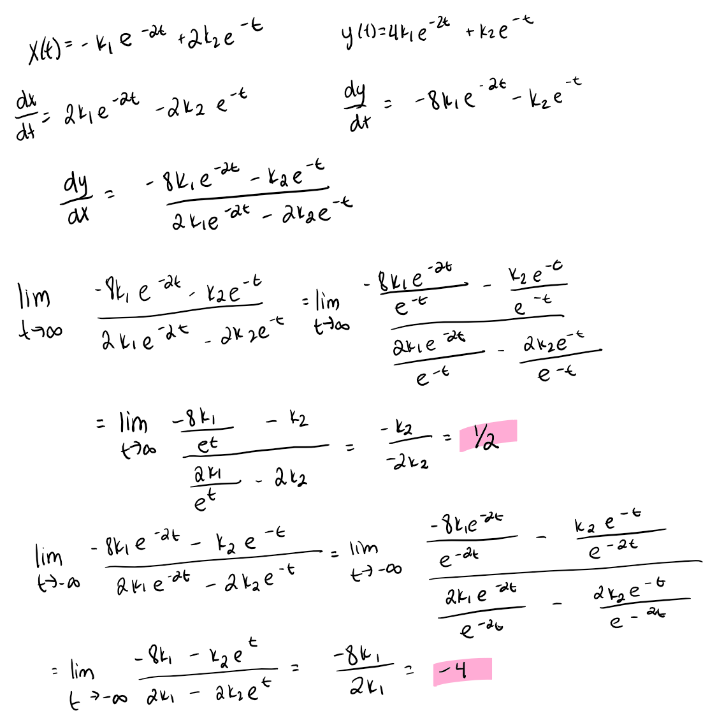 x(t) = -k₁e^{-2t} + 2k₂e^{-t}    y(t) = 4k₁e^{-2t} + k₂e^{-t}
dx/dt = 2k₁e^{-2t} - 2k₂e^{-t}    dy/dt = -8k₁e^{-2t} - k₂e^{-t}
dy/dx = (-8k₁e^{-2t} - k₂e^{-t})/(2k₁e^{-2t} - 2k₂e^{-t})
lim t→∞ (-8k₁e^{-2t} - k₂e^{-t})/(2k₁e^{-2t} - 2k₂e^{-t}) = lim t→∞ (-8k₁e^{-2t}/e^{-t} - k₂e^{-t}/e^{-t})/(2k₁e^{-2t}/e^{-t} - 2k₂e^{-t}/e^{-t})
= lim t→∞ (-8k₁/e^t - k₂)/(2k₁/e^t - 2k₂) = -k₂/-2k₂ = 1/2
lim t→-∞ (-8k₁e^{-2t} - k₂e^{-t})/(2k₁e^{-2t} - 2k₂e^{-t}) = lim t→-∞ (-8k₁e^{-2t}/e^{-2t} - k₂e^{-t}/e^{-2t})/(2k₁e^{-2t}/e^{-2t} - 2k₂e^{-t}/e^{-2t})
= lim t→-∞ (-8k₁ - k₂e^t)/(2k₁ - 2k₂e^t) = -8k₁/2k₁ = -4